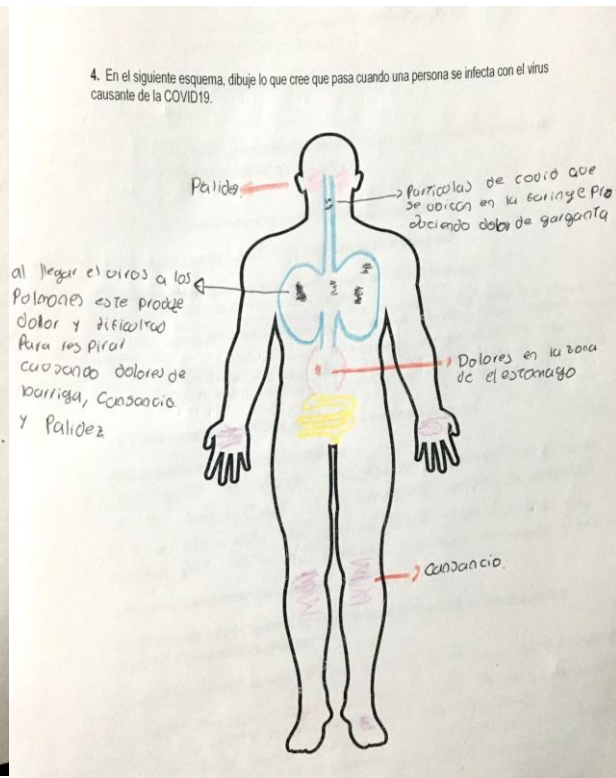 4. En el siguiente esquema, dibuje lo que cree que pasa cuando una persona se infecta con el virus
causante de la COVID19.
Palidez
Particolas de covid que
se obican en la faringe pro
duciendo dolor de garganta
al llegar el viros a los
Polmones este produze
dolor y dificoltad
Para respirar
causando dolores de
barriga, Cansancio.
y Palidez
Dolores en la zona
de el estomago
Cansancio.